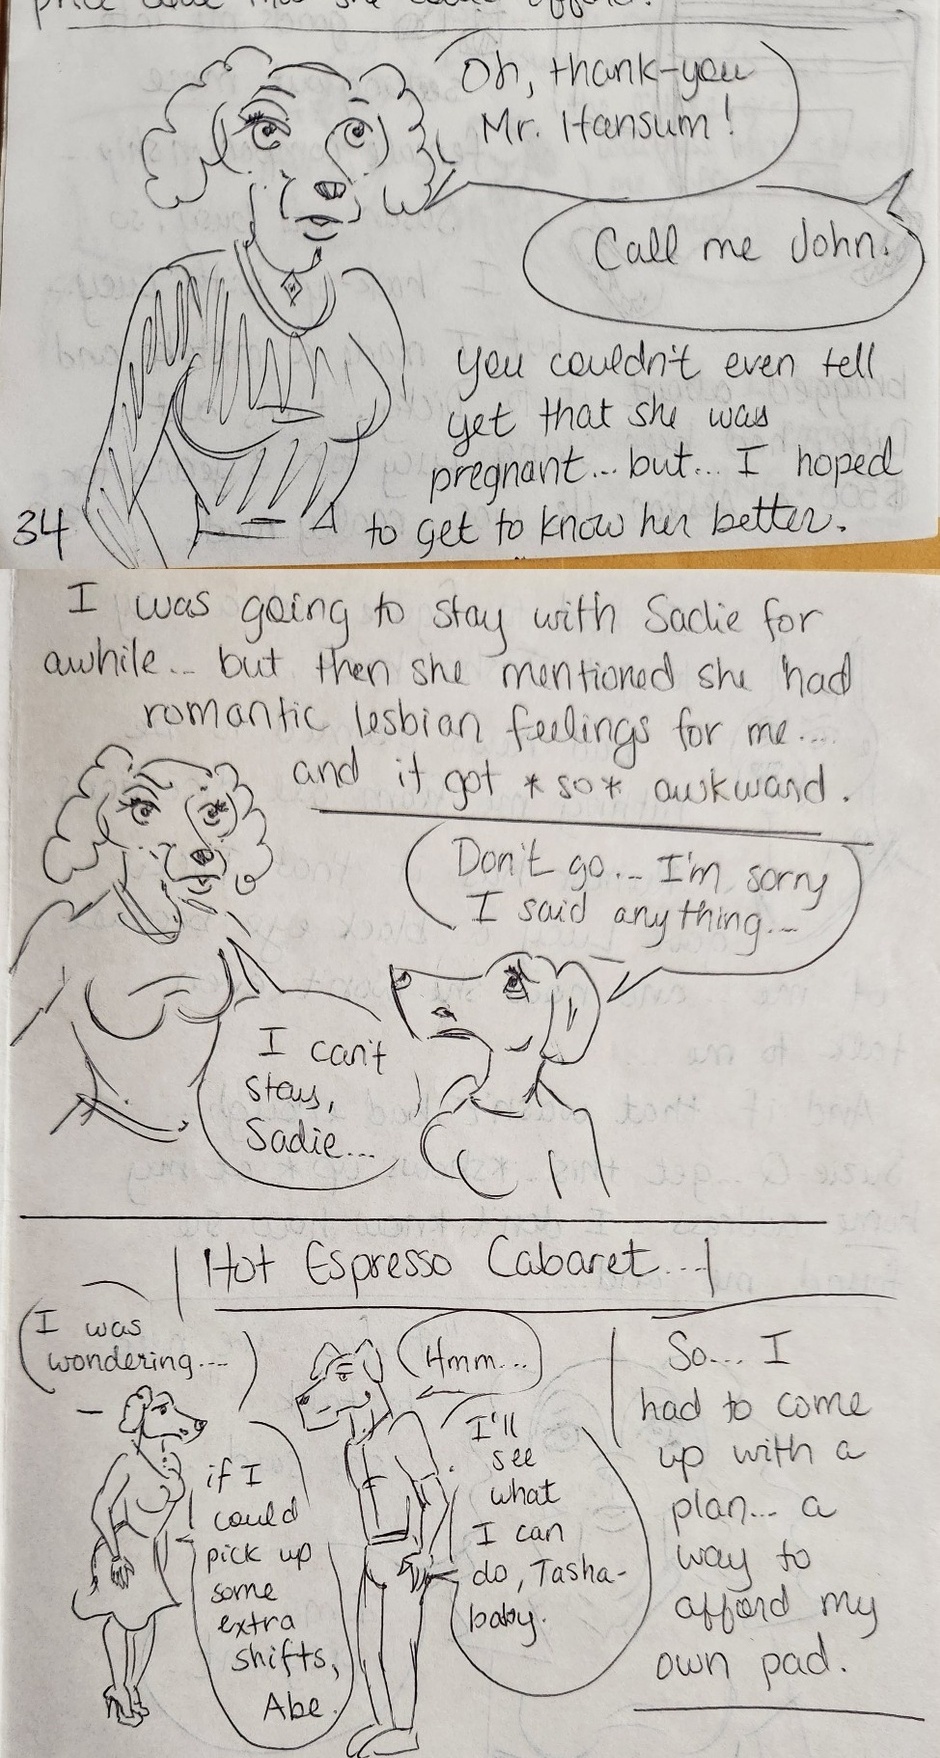 price
she
Oh, thank-you
Mr. Hansum!
Call me John.
you couldn't even tell
yet that she was
pregnant... but... I hoped
to get to know her better.
34
I was going to stay with Sadie for
awhile... but then she mentioned she had
romantic lesbian feelings for me....
and it got *so* awkward.
Don't go... I'm sorry
I said anything...
I can't
stay,
Sadie...
Hot Espresso Cabaret...
I was
wondering....
Hmm...
if I
could
pick up
some
extra
shifts,
Abe.
I'll
see
what
I can
do, Tasha-
baby.
So... I
had to come
up with a
plan... a
way to
afford my
own pad.